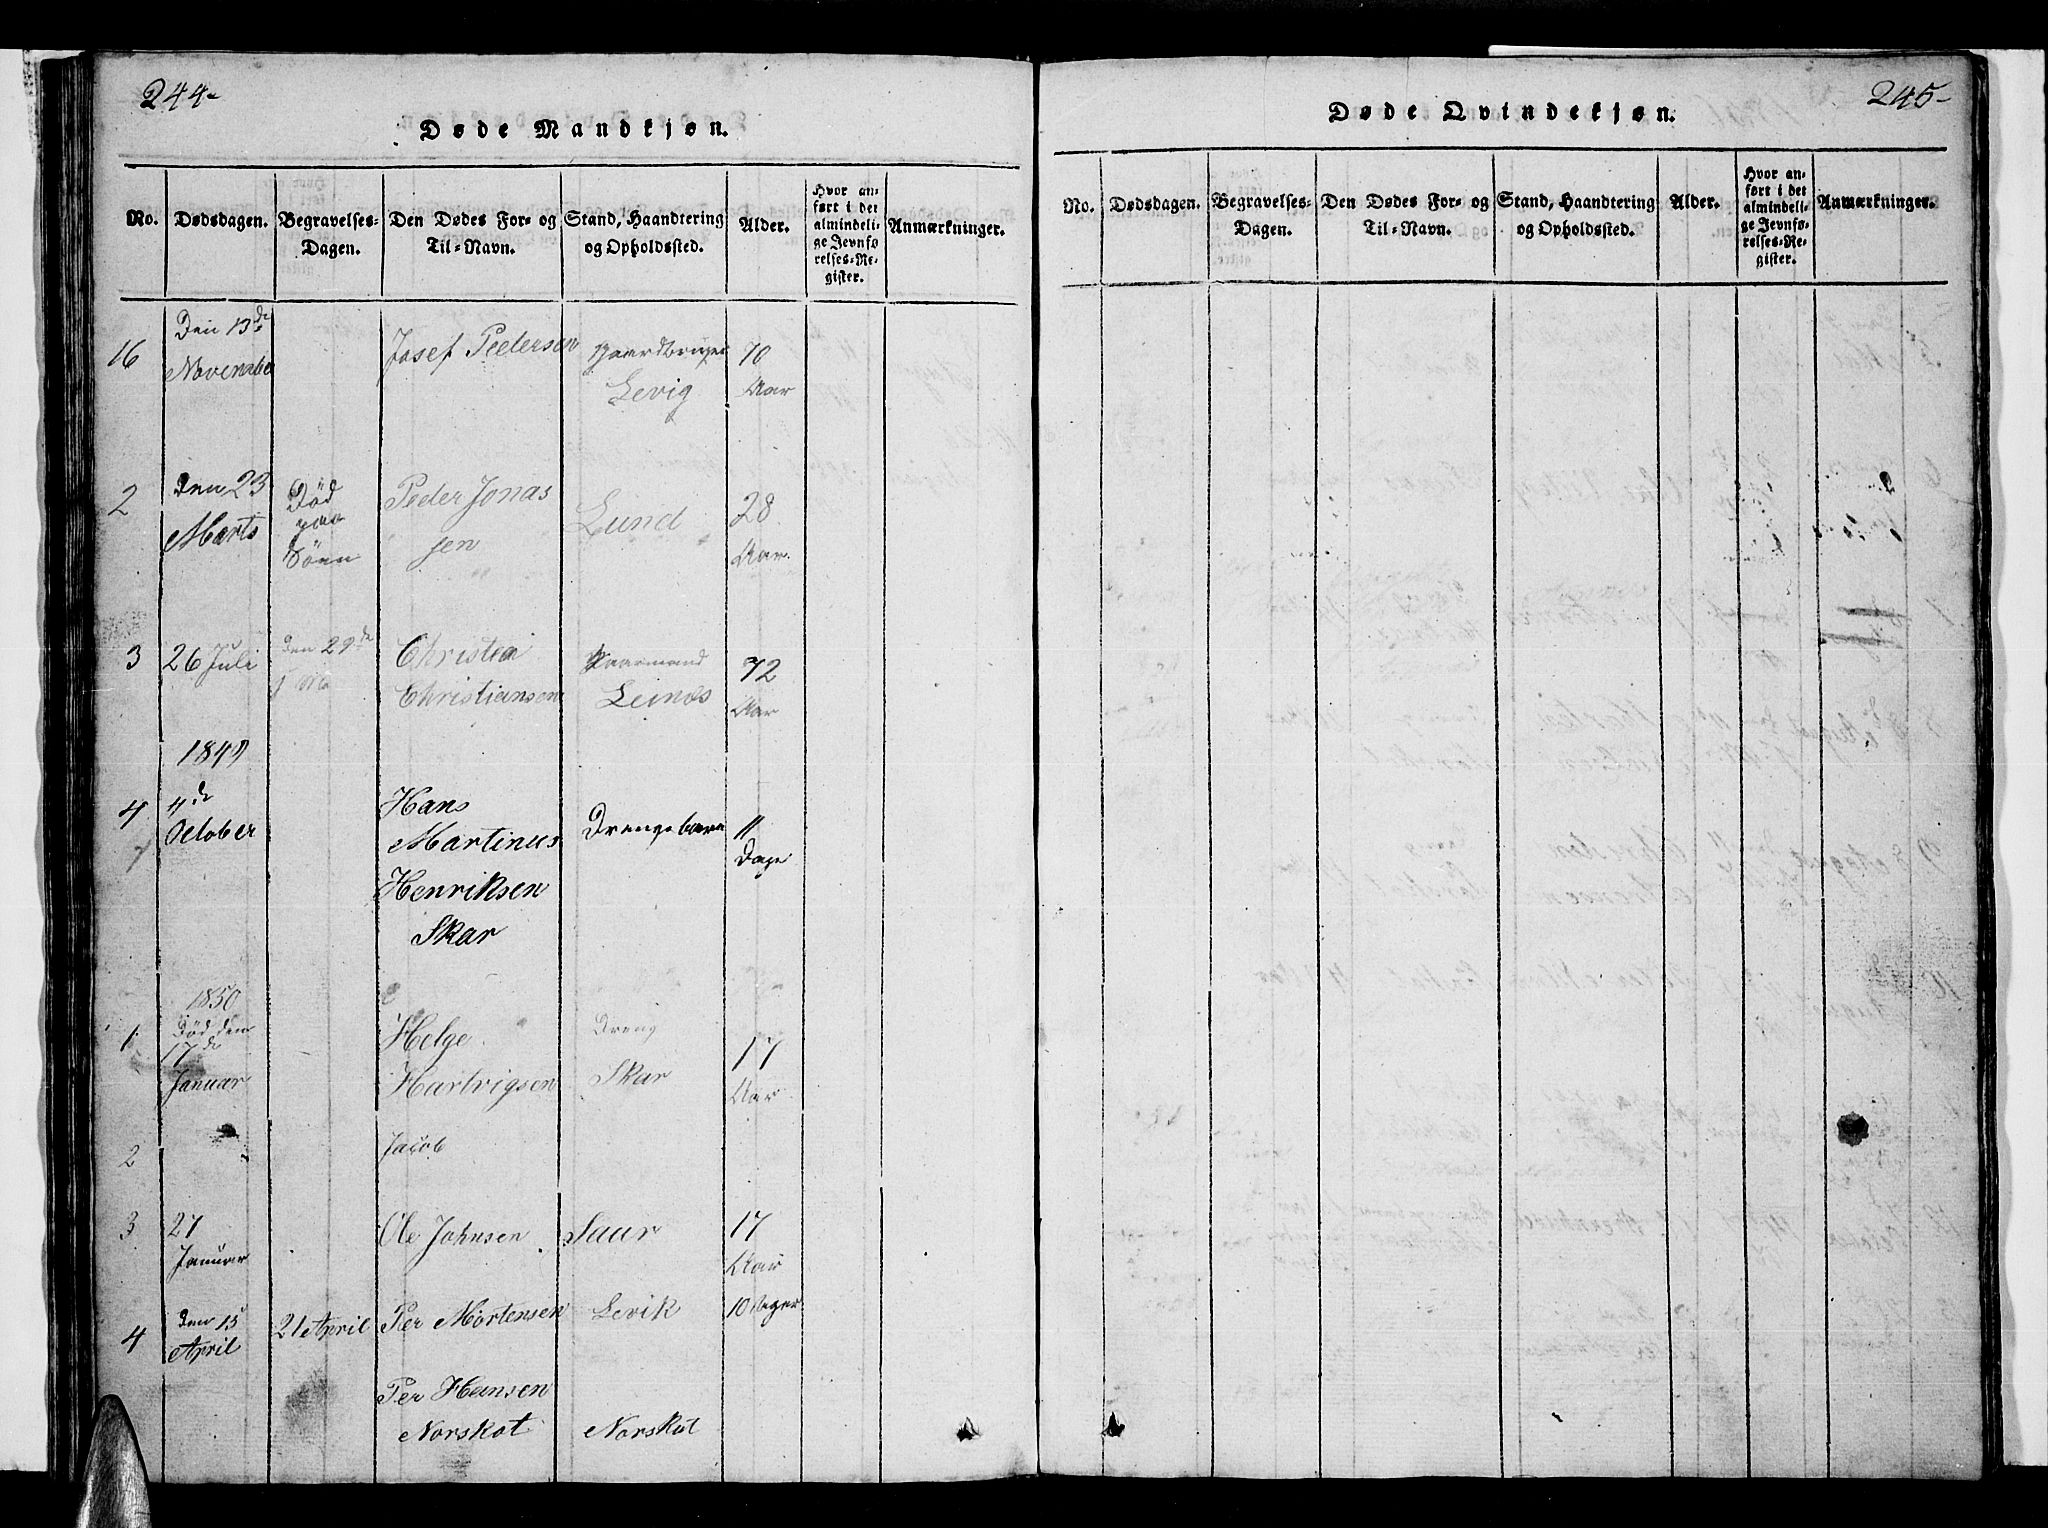 244-
Døde Mandkjøn.
No.
Dødsdagen.
Begravelses-
Dagen.
Den Dødes For- og
Til-Navn.
Stand, Haandtering
og Opholdssted.
Alder.
Hvor an-
ført i det
almindeli-
ge Jevnfø-
relses-Re-
gister.
Anmærkninger.
16
Den 13de
November
Josef Pedersen
Gaardbruger
Levig
70
Aar
2
Den 23
Marts
Död
paa
Söen
Peder Jonas
sen
Lund
28
Aar.
3
26 Juli
Den 29de
Christen
Christiansen
Leines
72
Aar
1849
4
4de
October
Hans
Martinus
Henriksen
Skar
Drengebarn
11
Dage
1850
1
Död den
17de
Januar
Helge
Hartvigsen
Dreng
Skar
17
Aar
2
Jacob
3
27
Januar
Ole Johnsen
Saur
17
Aar
4
Den 15
April
21 April
Per Mortensen
Levik
10 Uger
Per Hansen
Norskot
Norskot
245-
Døde Qvindekjøn.
No.
Dødsdagen.
Begravelses-
Dagen.
Den Dødes For- og
Til-Navn.
Stand, Haandtering
og Opholdssted.
Alder.
Hvor an-
ført i det
almindeli-
ge Jevnfø-
relses-Re-
gister.
Anmærkninger.